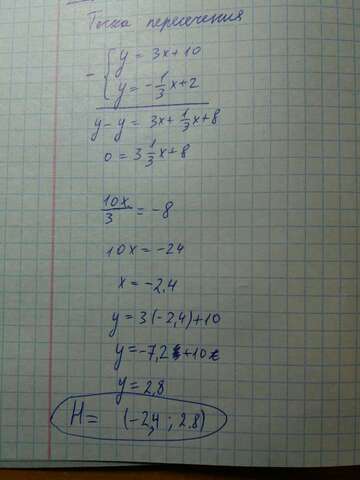 Точка пересечения
- { y = 3x + 10
y = -1/3 x + 2
y - y = 3x + 1/3 x + 8
0 = 3 1/3 x + 8
10x/3 = -8
10x = -24
x = -2,4
y = 3(-2,4) + 10
y = -7,2 + 10
y = 2,8
H = (-2,4 ; 2.8)